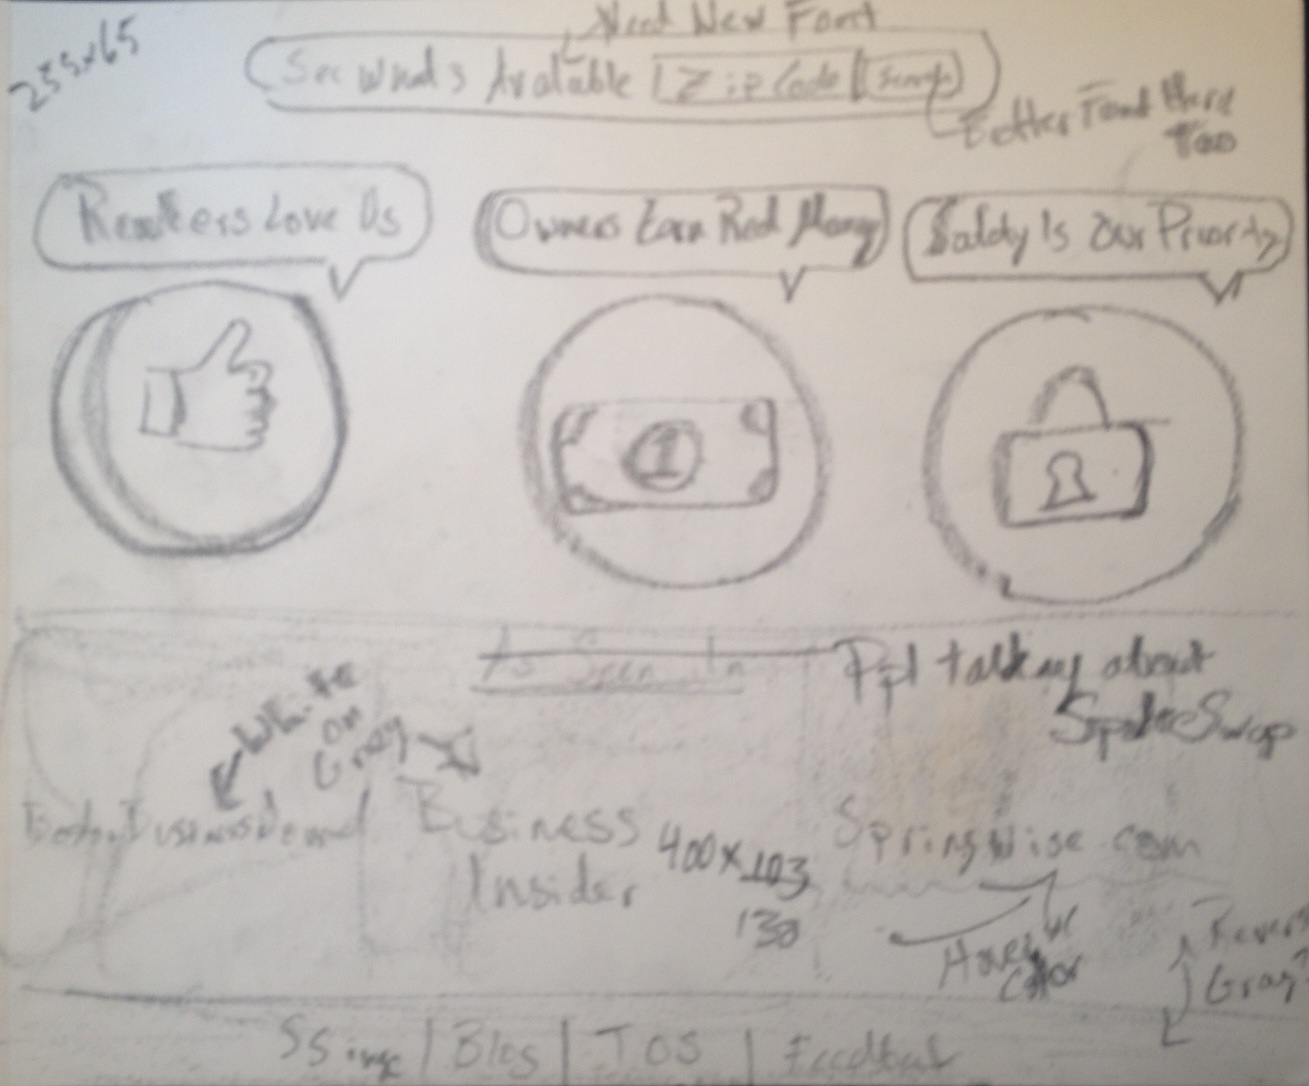 255x65
Need New Font
See What's Avalable Zip Code Search
Better Font Here
Too
Renters Love Us
Owners Earn Real Money
Safety Is Our Priority
1
As Seen In
Ppl talking about
White
on
Gray
Business
Insider
400x103
130
SpringWise.com
Hover w/
Color
Gray?
Blog
TOS
Feedback